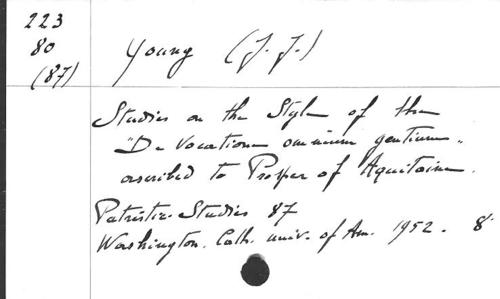 223
80
(87)
Young (J. J.)
Studies on the Style of the
"De Vocatione omnium gentium"
ascribed to Prosper of Aquitaine.
Patristic Studies 87
Washington. Cath. univ. of Am. 1952. 8°